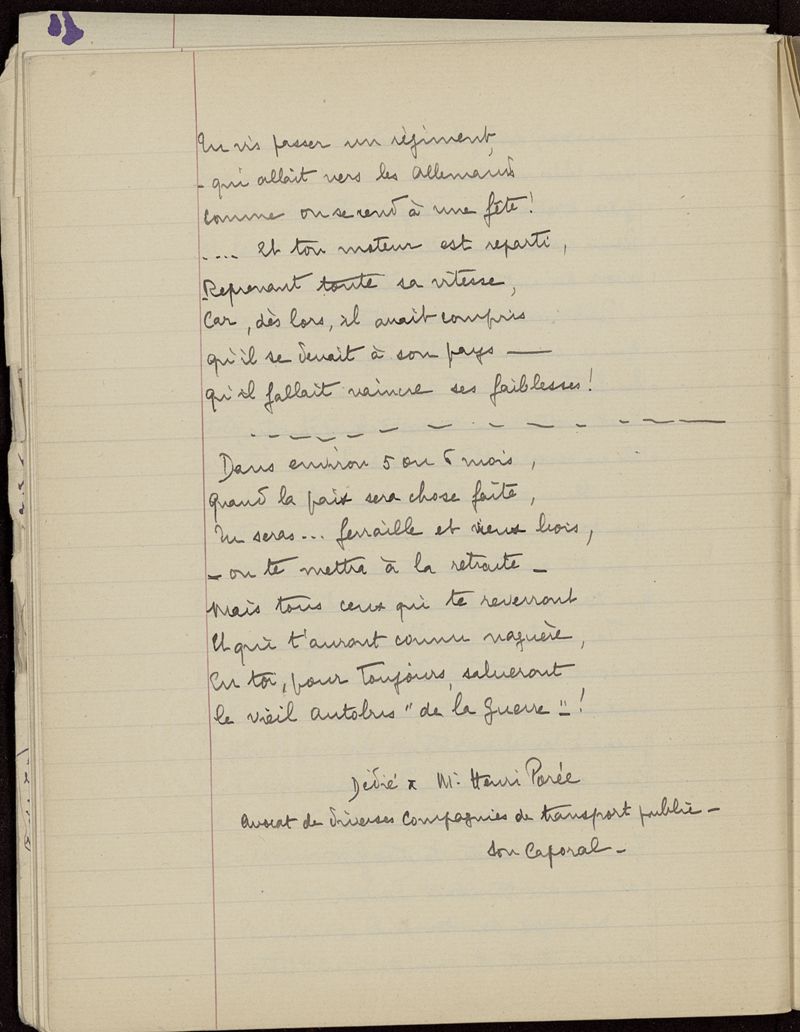 Tu vis passer un régiment,
- qui allait vers les Allemands
comme on se rend à une fête !
.... Et ton moteur est reparti,
Reprenant toute sa vitesse,
Car, dès lors, il avait compris
qu'il se devait à son pays —
qu'il fallait vaincre ses faiblesses !
Dans environ 5 ou 6 mois,
Quand la paix sera chose faite,
Tu seras... ferraille et vieux bois,
- on te mettra à la retraite -
Mais tous ceux qui te reverront
Et qui t'auront connu naguère,
En toi, pour toujours, salueront
le vieil Autobus " de la Guerre " !
Dédié à Mr Henri Parée
avocat de diverses Compagnies de transport public -
son Caporal -